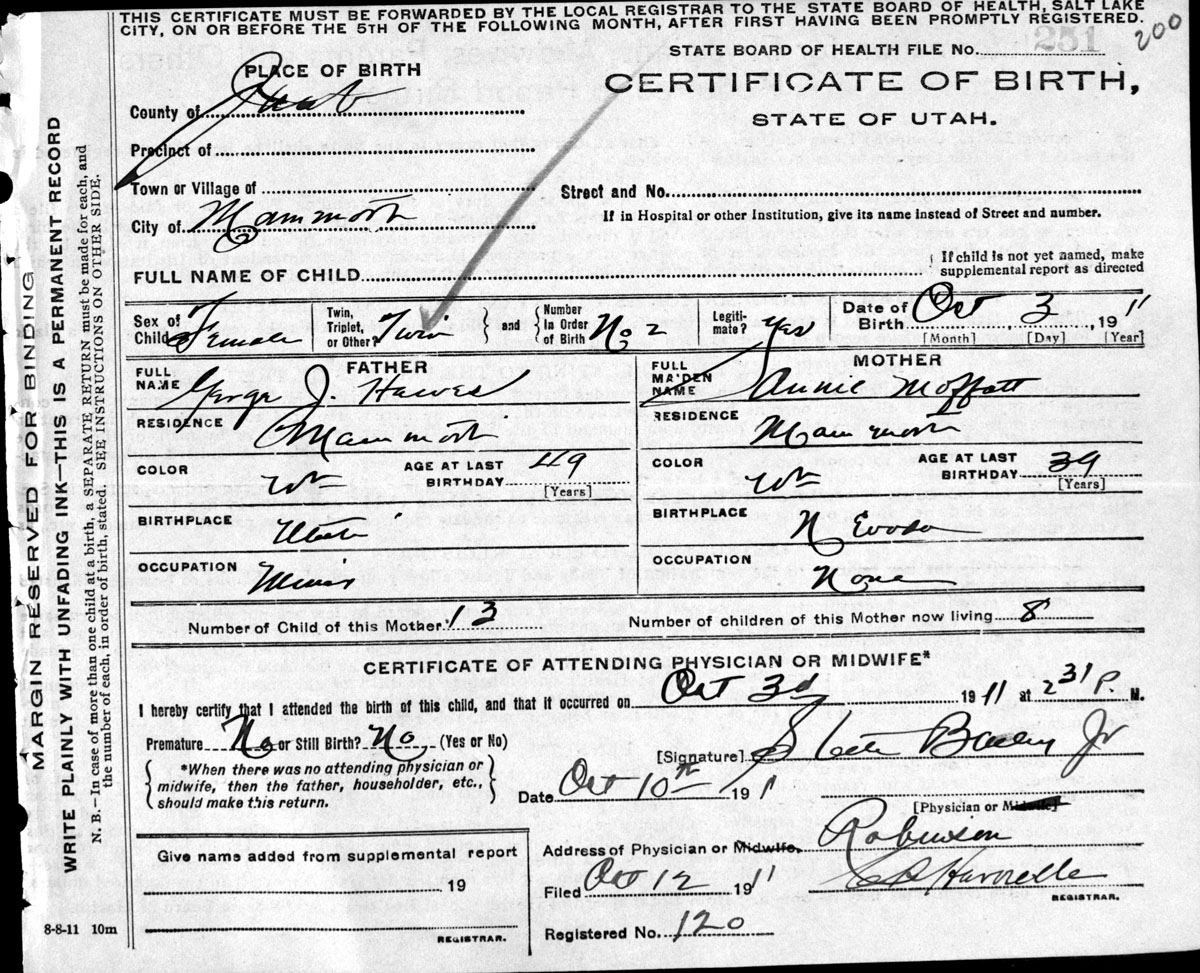 THIS CERTIFICATE MUST BE FORWARDED BY THE LOCAL REGISTRAR TO THE STATE BOARD OF HEALTH, SALT LAKE
CITY, ON OR BEFORE THE 5TH OF THE FOLLOWING MONTH, AFTER FIRST HAVING BEEN PROMPTLY REGISTERED.
200
STATE BOARD OF HEALTH FILE No. 251
PLACE OF BIRTH
CERTIFICATE OF BIRTH,
STATE OF UTAH.
County of Juab
Precinct of
Town or Village of
Street and No.
City of Mammoth
If in Hospital or other Institution, give its name instead of Street and number.
FULL NAME OF CHILD
{ If child is not yet named, make
supplemental report as directed
Sex of Child Female
Twin, Triplet, or Other? Twin
and
Number In Order of Birth No 2
Legiti-mate? Yes
Date of Birth Oct 3, 1911
[Month] [Day] [Year]
FATHER
MOTHER
FULL NAME George J. Hawes
FULL MAIDEN NAME Annie Moffatt
RESIDENCE Mammoth
RESIDENCE Mammoth
COLOR Wh
AGE AT LAST BIRTHDAY 49 [Years]
COLOR Wh
AGE AT LAST BIRTHDAY 39 [Years]
BIRTHPLACE Utah
BIRTHPLACE Nevada
OCCUPATION
OCCUPATION None
Number of Child of this Mother 13
Number of children of this Mother now living 8
CERTIFICATE OF ATTENDING PHYSICIAN OR MIDWIFE*
I hereby certify that I attended the birth of this child, and that it occurred on Oct 3d 1911 at 2 31 P. M.
Premature No or Still Birth? No (Yes or No)
[Signature] Bailey Jr
*When there was no attending physician or
midwife, then the father, householder, etc.,
should make this return.
Date Oct 10th 1911
[Physician or Midwife]
Give name added from supplemental report
19
REGISTRAR.
Address of Physician or Midwife. Robinson
Filed Oct 12 1911
REGISTRAR.
Registered No. 120
8-8-11 10m
MARGIN RESERVED FOR BINDING
WRITE PLAINLY WITH UNFADING INK—THIS IS A PERMANENT RECORD
N. B.—In case of more than one child at a birth, a SEPARATE RETURN must be made for each, and
the number of each, in order of birth, stated. SEE INSTRUCTIONS ON OTHER SIDE.